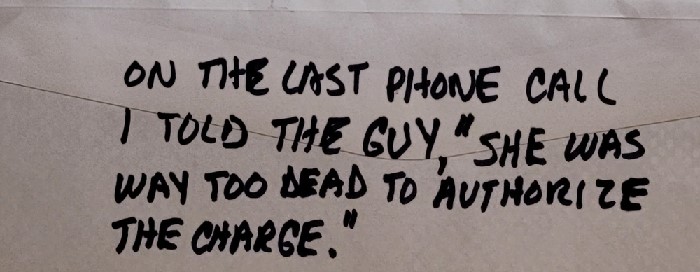 ON THE LAST PHONE CALL
I TOLD THE GUY, "SHE WAS
WAY TOO DEAD TO AUTHORIZE
THE CHARGE."